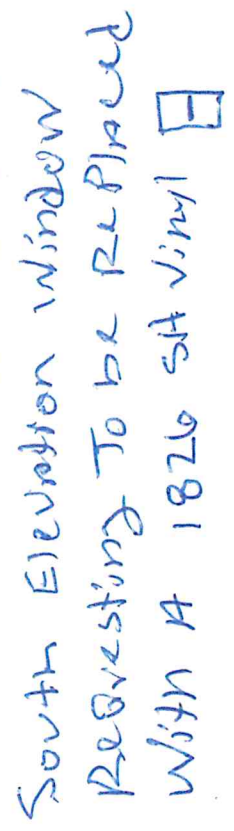 South Elevation Window
Requesting To be Replaced
With A 1826 SH Vinyl